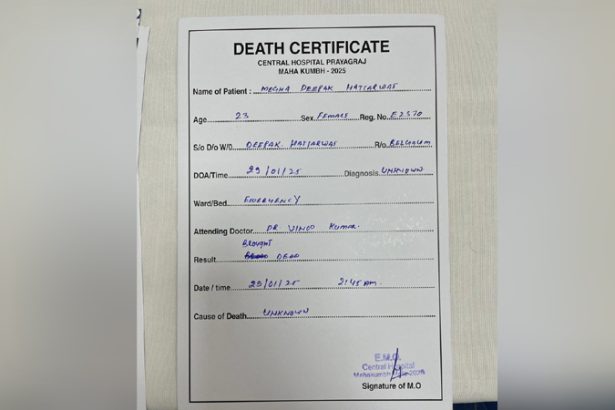 DEATH CERTIFICATE
CENTRAL HOSPITAL PRAYAGRAJ
MAHA KUMBH - 2025
Name of Patient : MEGHA DEEPAK HATTARWAT
Age 23 Sex FEMALE Reg. No. E2570
S/o D/o W/o DEEPAK HATTARWAT R/o BELGAUM
DOA/Time 29/01/25 Diagnosis UNKNOWN
Ward/Bed EMERGENCY
Attending Doctor DR VINOD KUMAR
BROUGHT
Result DEAD
Date / time 29/01/25 2:45 am.
Cause of Death UNKNOWN
E.M.O.
Central Hospital
Signature of M.O